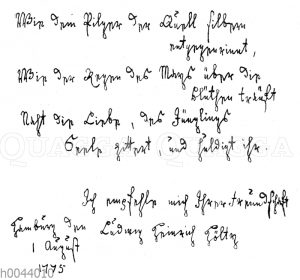 Wie dem Pilger der Quell silbern
entgegenrinnt,
Wie der Regen des Mays über die
Blüthen träuft
Naht die Liebe, des Jünglings
Seele zittert, und huldigt ihr.
Ich empfehle mich Ihrer Freundschaft
Hamburg den Ludwig Heinrich Hölty
1 August
1775
h0044010